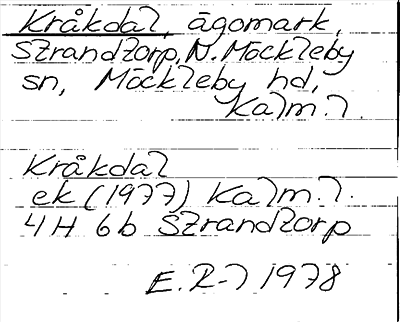 Kråkdal, ägomark,
Strandtorp, N. Möckleby
sn, Möckleby hd,
Kalm. l.
Kråkdal
ek (1977) Kalm. l.
4H 6b Strandtorp
E. R-l 1978